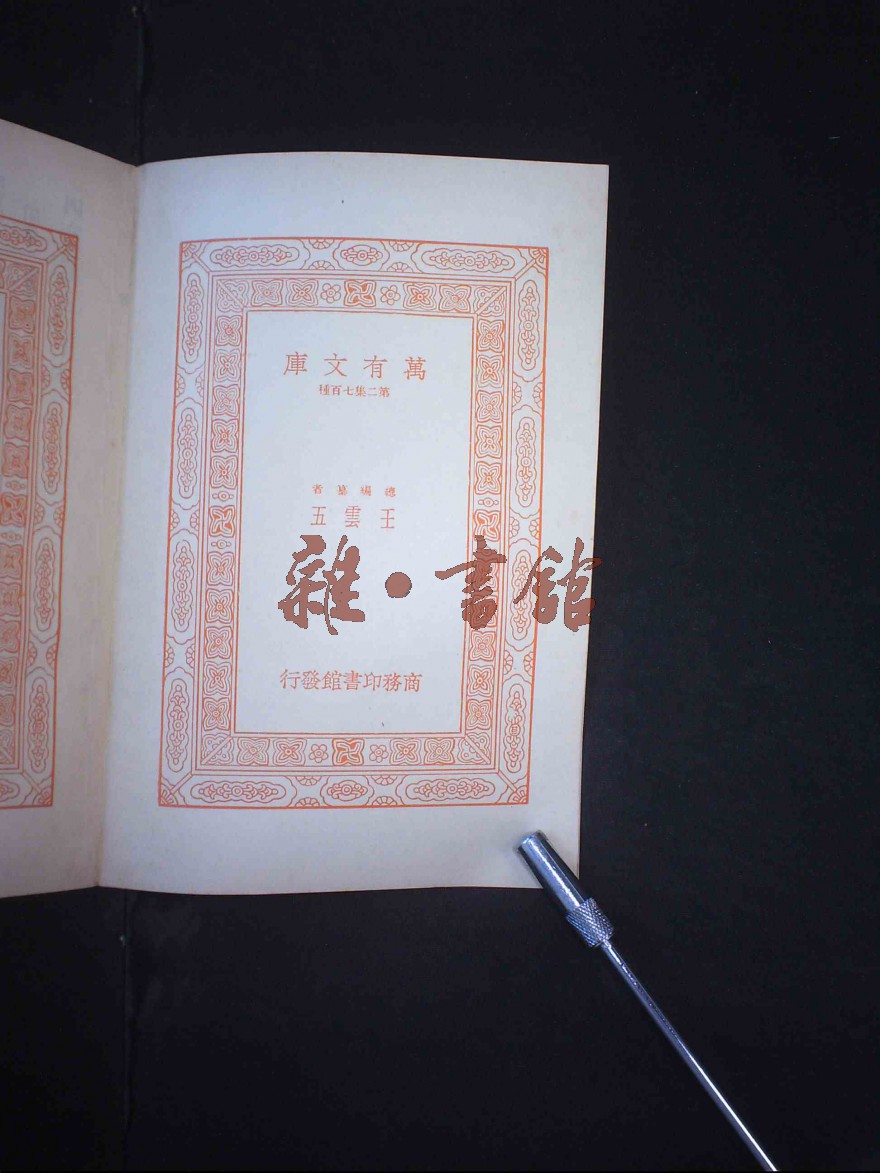 萬有文庫
第二集七百種
總編纂者
王雲五
商務印書館發行
雜·書館